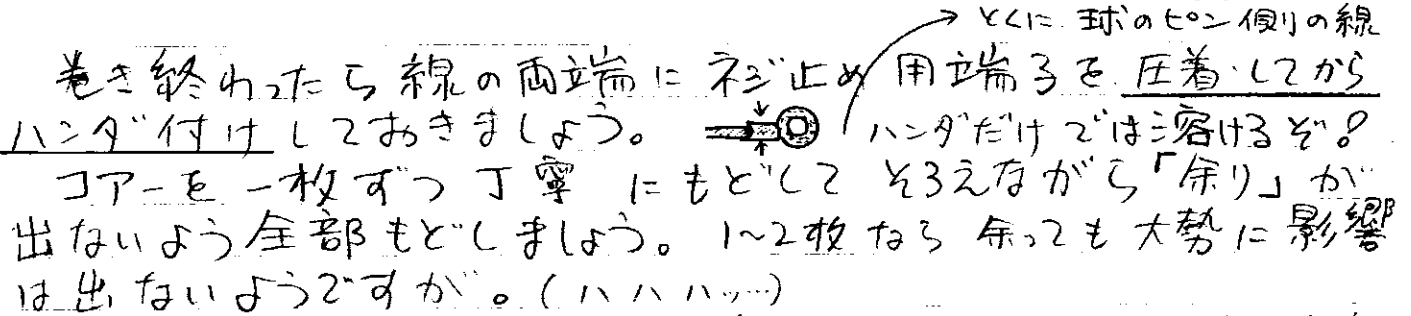 とくに 球のピン側の線
巻き終わったら線の両端にネジ止め用端子を圧着してから
ハンダ付けしておきましょう。 ハンダだけでは溶けるぞ?
コアーを一枚ずつ丁寧にもどして そろえながら「余り」が
出ないよう全部もどしましょう。1~2枚なら余っても大勢に影響
は出ないようですが。(ハハハッ…)